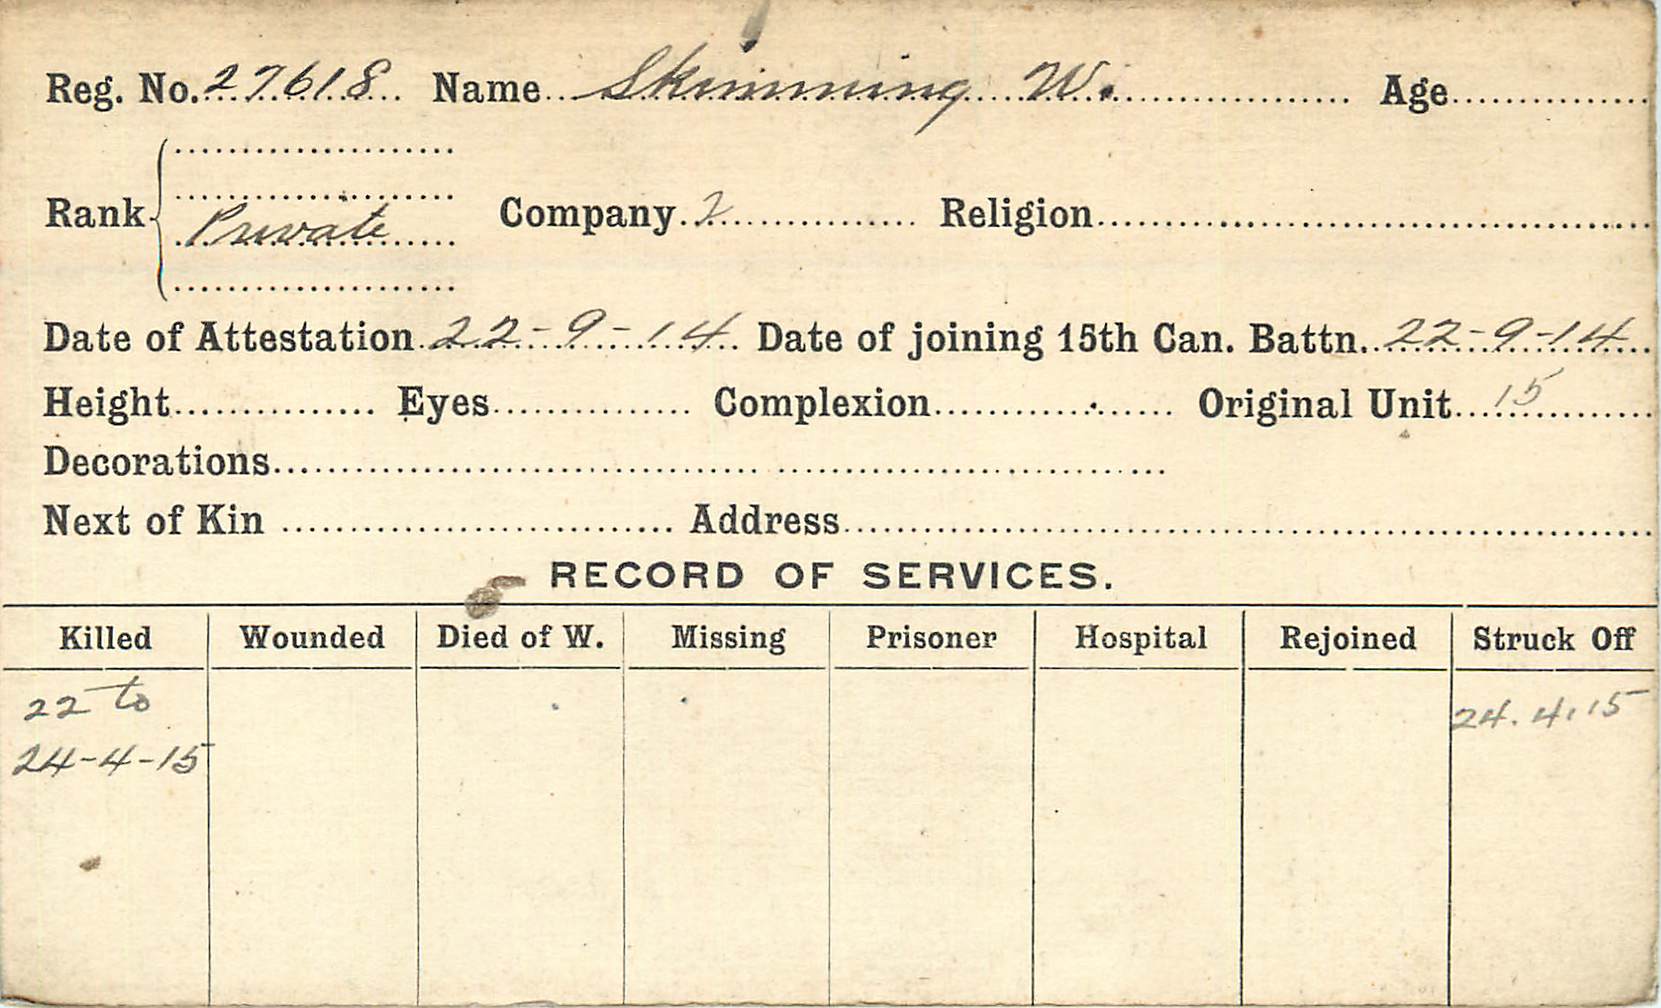 Reg. No. 27618 Name Skimming W. Age
Rank Private Company 2 Religion
Date of Attestation 22-9-14 Date of joining 15th Can. Battn. 22-9-14
Height Eyes Complexion Original Unit 15
Decorations
Next of Kin Address
RECORD OF SERVICES.
Killed Wounded Died of W. Missing Prisoner Hospital Rejoined Struck Off
22 to 24.4.15
24-4-15